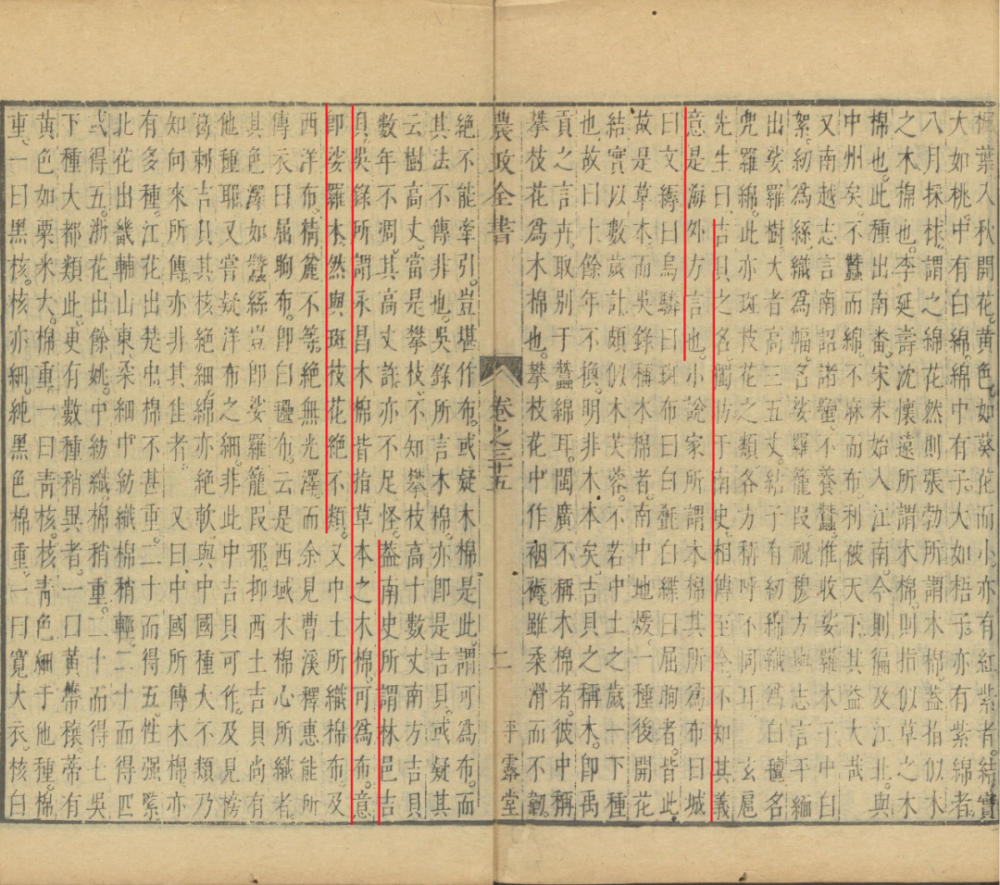 葉入秋開花黃色如葵花而小亦有紅紫者結實
大如桃中有白綿綿中有子大如梧子亦有紫綿者
八月採梂謂之綿花然則張勃所謂木棉蓋指似木
之木棉也李延壽沈懷遠所謂木棉則指似草之木
棉也此種出南番宋末始入江南今則徧及江北與
中州矣不蠶而綿不麻而布利被天下其益大哉
又南越志言南詔諸蠻不養蠶惟收娑羅木子中白
絮紉為絲織為幅名娑羅籠段祝穆方輿志言平緬
出娑羅樹大者高三五丈結子有紉綿織為白氊名
兜羅綿此亦斑枝花之類各方稱呼不同耳 玄扈
先生曰古貝之名獨昉于南史相傳至今不知其義
意是海外方言也小說家所謂木棉其所為布曰城
曰文縟曰烏驎曰斑布曰白㲲白緤曰屈眴者皆此
故是草本而吳錄稱木棉者南中地煖一種後開花
結實以數歲計頗似木芙蓉不若中土之歲一下種
也故曰十餘年不換明非木本矣吉貝之稱木即禹
貢之言卉取別于蠶綿耳閩廣不稱木棉者彼中稱
攀枝花為木棉也攀枝花中作裀褥雖柔滑而不韌
農政全書 卷之三十五 平露堂
絕不能牽引豈堪作布或疑木棉是此謂可為布而
其法不傳非也吳錄所言木棉亦即是吉貝或疑其
云樹高丈當是攀枝不知攀枝高十數丈南方吉貝
數年不凋其高丈許亦不足怪蓋南史所謂林邑吉
貝吳錄所謂永昌木棉皆指草本之木棉可為布意
即娑羅木然與斑枝花絕不類又中土所織棉布及
西洋布精麤不等絕無光澤而余見曹溪釋惠能所
傳衣曰屈眴布即白㲲布云是西域木棉心所織者
其色澤如蠶絲豈即娑羅籠段邪抑西土吉貝尚有
他種耶又嘗疑洋布之細非此中吉貝可作及見榜
葛剌吉貝其核絕細綿亦絕軟與中國種大不類乃
知向來所傳亦非其佳者 又曰中國所傳木棉亦
有多種江花出楚中棉不甚重二十而得五性强緊
北花出畿輔山東柔細中紡織棉稍輕二十而得四
或得五浙花出餘姚中紡織棉稍重二十而得七吳
下種大都類此更有數種稍異者一曰黃蔕穰蒂有
黃色如粟米大棉重一曰青核核青色細于他種棉
重一曰黑核核亦細純黑色棉重一曰寬大衣核白